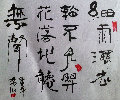 細雨濕衣
看不見閒
花落地聽
無聲